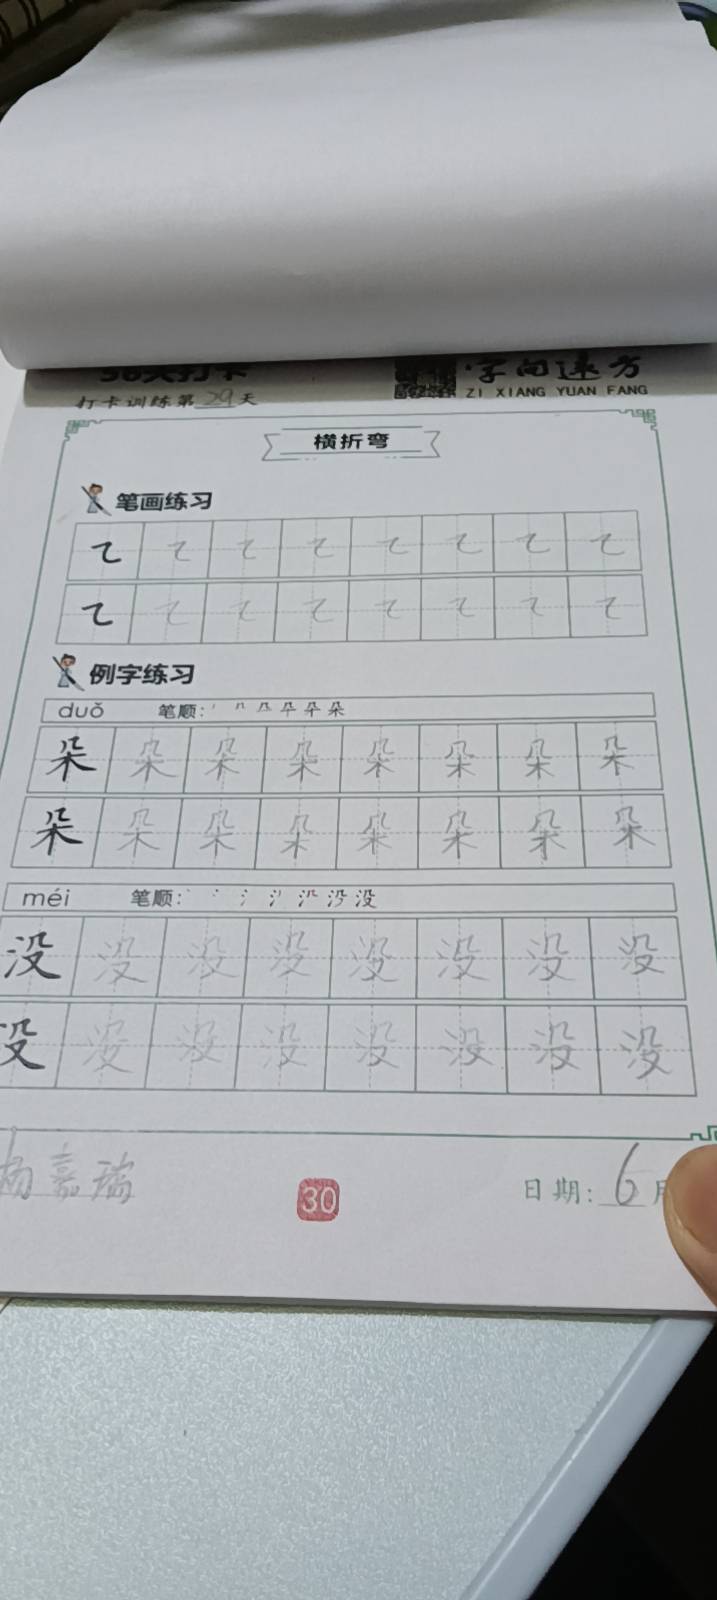 打卡训练第29天
字向远方
ZI XIANG YUAN FANG
横折弯
笔画练习
例字练习
duǒ 笔顺:
朵 朵 朵 朵 朵 朵 朵 朵
朵 朵 朵 朵 朵 朵 朵 朵
méi 笔顺: 没
没 没 没 没 没 没 没 没
没 没 没 没 没 没 没 没
杨嘉瑞
30
日期: 6月